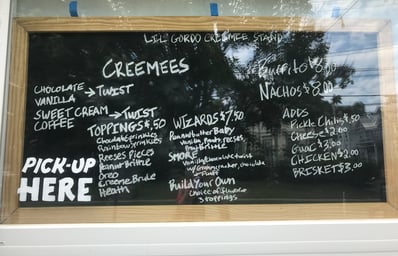 LIL GORDO CREEMEE STAND
CREEMEES
CHOCOLATE
VANILLA → TWIST
SWEET CREAM
COFFEE → TWIST
TOPPINGS $.50
Chocolate Sprinkles
Rainbow Sprinkles
Reeses Pieces
Peanut Brittle
Oreo
Creme Brule
Heath
PICK-UP
HERE
WIZARDS $7.50
Peanut butter Baby
Vanilla, Reeses
SMORE
Vanilla/Chocolate twist
w/ Graham cracker, chocolate
Build Your Own
Choice of flavor
3 toppings
Burrito
NACHOS $8.00
ADDS
Pickle Chilis $.50
Cheese $2.00
Guac $3.00
CHICKEN $2.00
BRISKET $3.00